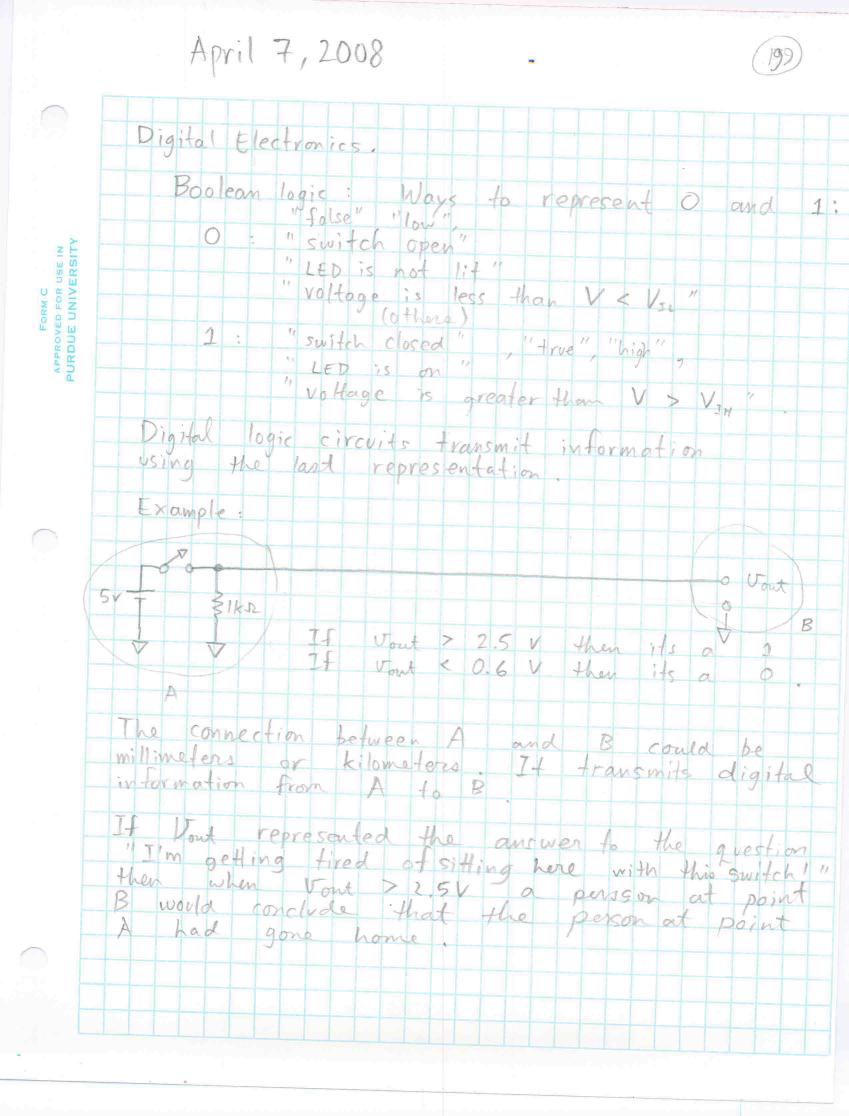 April 7, 2008
199
FORM C
APPROVED FOR USE IN
PURDUE UNIVERSITY
Digital Electronics.
Boolean logic : Ways to represent 0 and 1:
"false" "low",
0 : "switch open"
"LED is not lit"
"voltage is less than V < V_IL"
(others)
1 : "switch closed", "true", "high",
"LED is on"
"voltage is greater than V > V_IH".
Digital logic circuits transmit information
using the last representation.
Example:
5v
1kΩ
Vout
B
If Vout > 2.5 V then its a 1
If Vout < 0.6 V then its a 0.
A
The connection between A and B could be
millimeters or kilometers. It transmits digital
information from A to B.
If Vout represented the answer to the question
"I'm getting tired of sitting here with this switch!"
then when Vout > 2.5V a persson at point
B would conclude that the person at point
A had gone home.